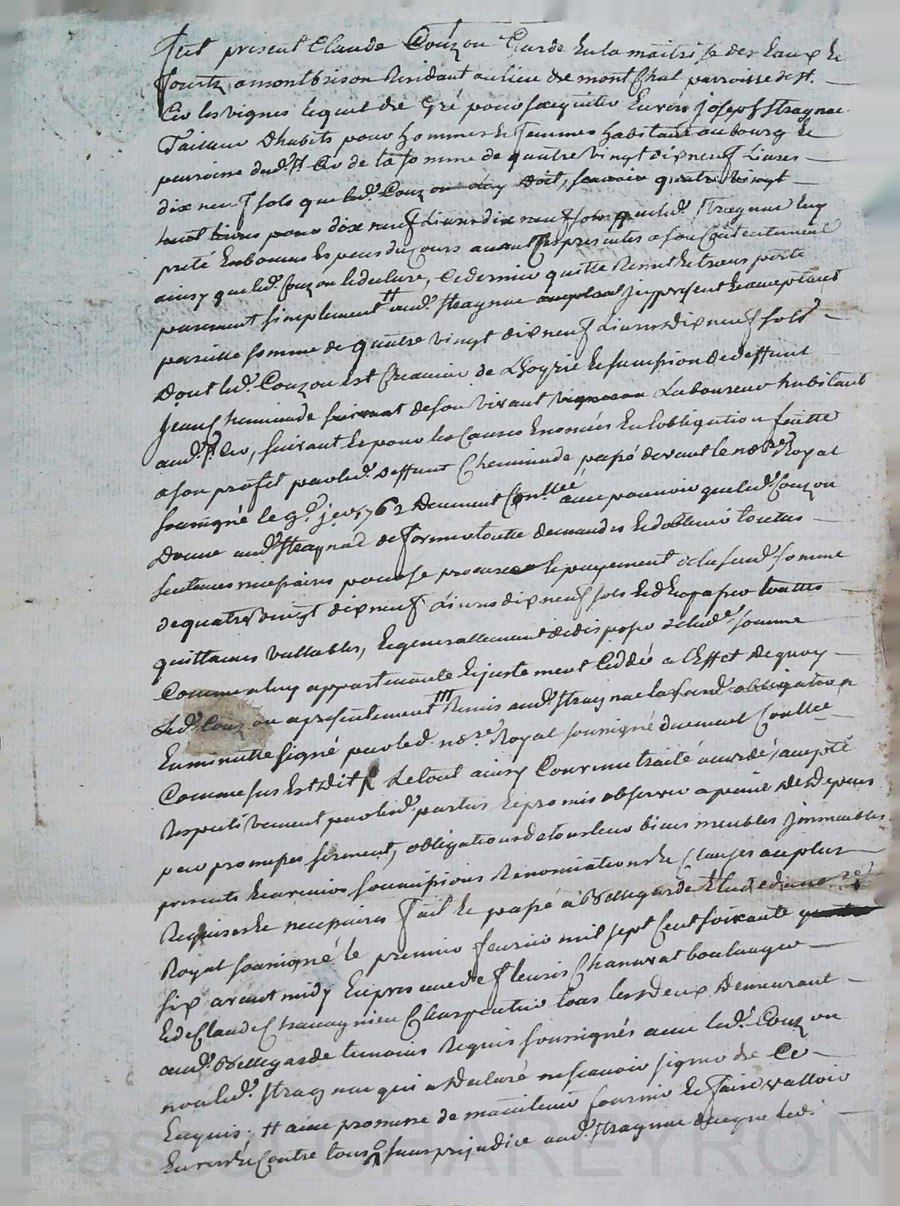 fut present Claude Couzon Garde En la maitrise des Eaux et
fourts a montbrison Residant au lieu de mont Chal parroisse de st.
Cir les vignes lequel de Gré pour sacquiter Envers joseph Straynac
Tailleur Dhabits pour hommes et femmes habitant au bourg et
parroisse dud. st. Cir de la somme de quatre vingt dix neuf Livres
dix neuf sols que led. Couzon Luy doit, scavoir quatre vingt
pour dix neuf Livres dix neuf sols que led. Straynac Luy
preté En bonnes Especes du cours avant Ces presentes a son Contentement
ainsy que led. Couzon le declare, Ce dernier quitte Remet et transporte
purement simplement # aud. Straynac icy present et acceptant
pareille somme de quatre vingt dix neuf Livres dix neuf sols
Dont led. Couzon Est Creancier de Lhoyrie et succession de deffunt
jean Cheminade de son vivant Laboureur habitant
aud. st. Cir, suivant et pour les Causes Enoncées En Lobligation faitte
a son profit par led. deffunt Cheminade passé devant le nore. Royal
soussigné le 9e. jer. 1762 Deument Conllée avec pouvoir que led. Couzon
Donne aud. Straynac de former toutte demandes et dobtenir touttes
sentences necessaires pour se procurer le payement de la susd. somme
de quatre vingt dix neuf Livres dix neuf sols Et dEn passer touttes
quittances vallables, Et generallement de disposer de lad. somme
Comme a Luy appartenante Et justement Ceddé a l'Effet de quoy
Led. Couzon a presentement Remis aud. Straynac la susd. obligation
En minutte signé par led. nore. Royal soussigné Deument Conllée
Comme sus Est dit Le tout ainsy Convenu traité accordé, accepté
Respectivement par lesd. parties Et promis observer a peine de Depens
par promesses serment, obligations de tous leur biens meubles immeubles
presents Et avenirs soumissions Renonciations et Clauses au plus
Requises et necessaires fait et passé à Bellegarde Etude dud. nore.
Royal soussigné le premier fevrier mil sept Cent soixante
six avant midy En presence de fleuris Chanavat boulanger
Et de Claude Chavagnieu Charpentier tous les deux Demeurant
aud. Bellegarde temoins Requis soussignés avec led. Couzon
non led. Straynac qui a Declaré ne scavoir signer de Ce
Enquis; # avec promesse de maintenir fournir et faire valloir
Envers et Contre tous sans prejudice aud. Straynac de ce que led.